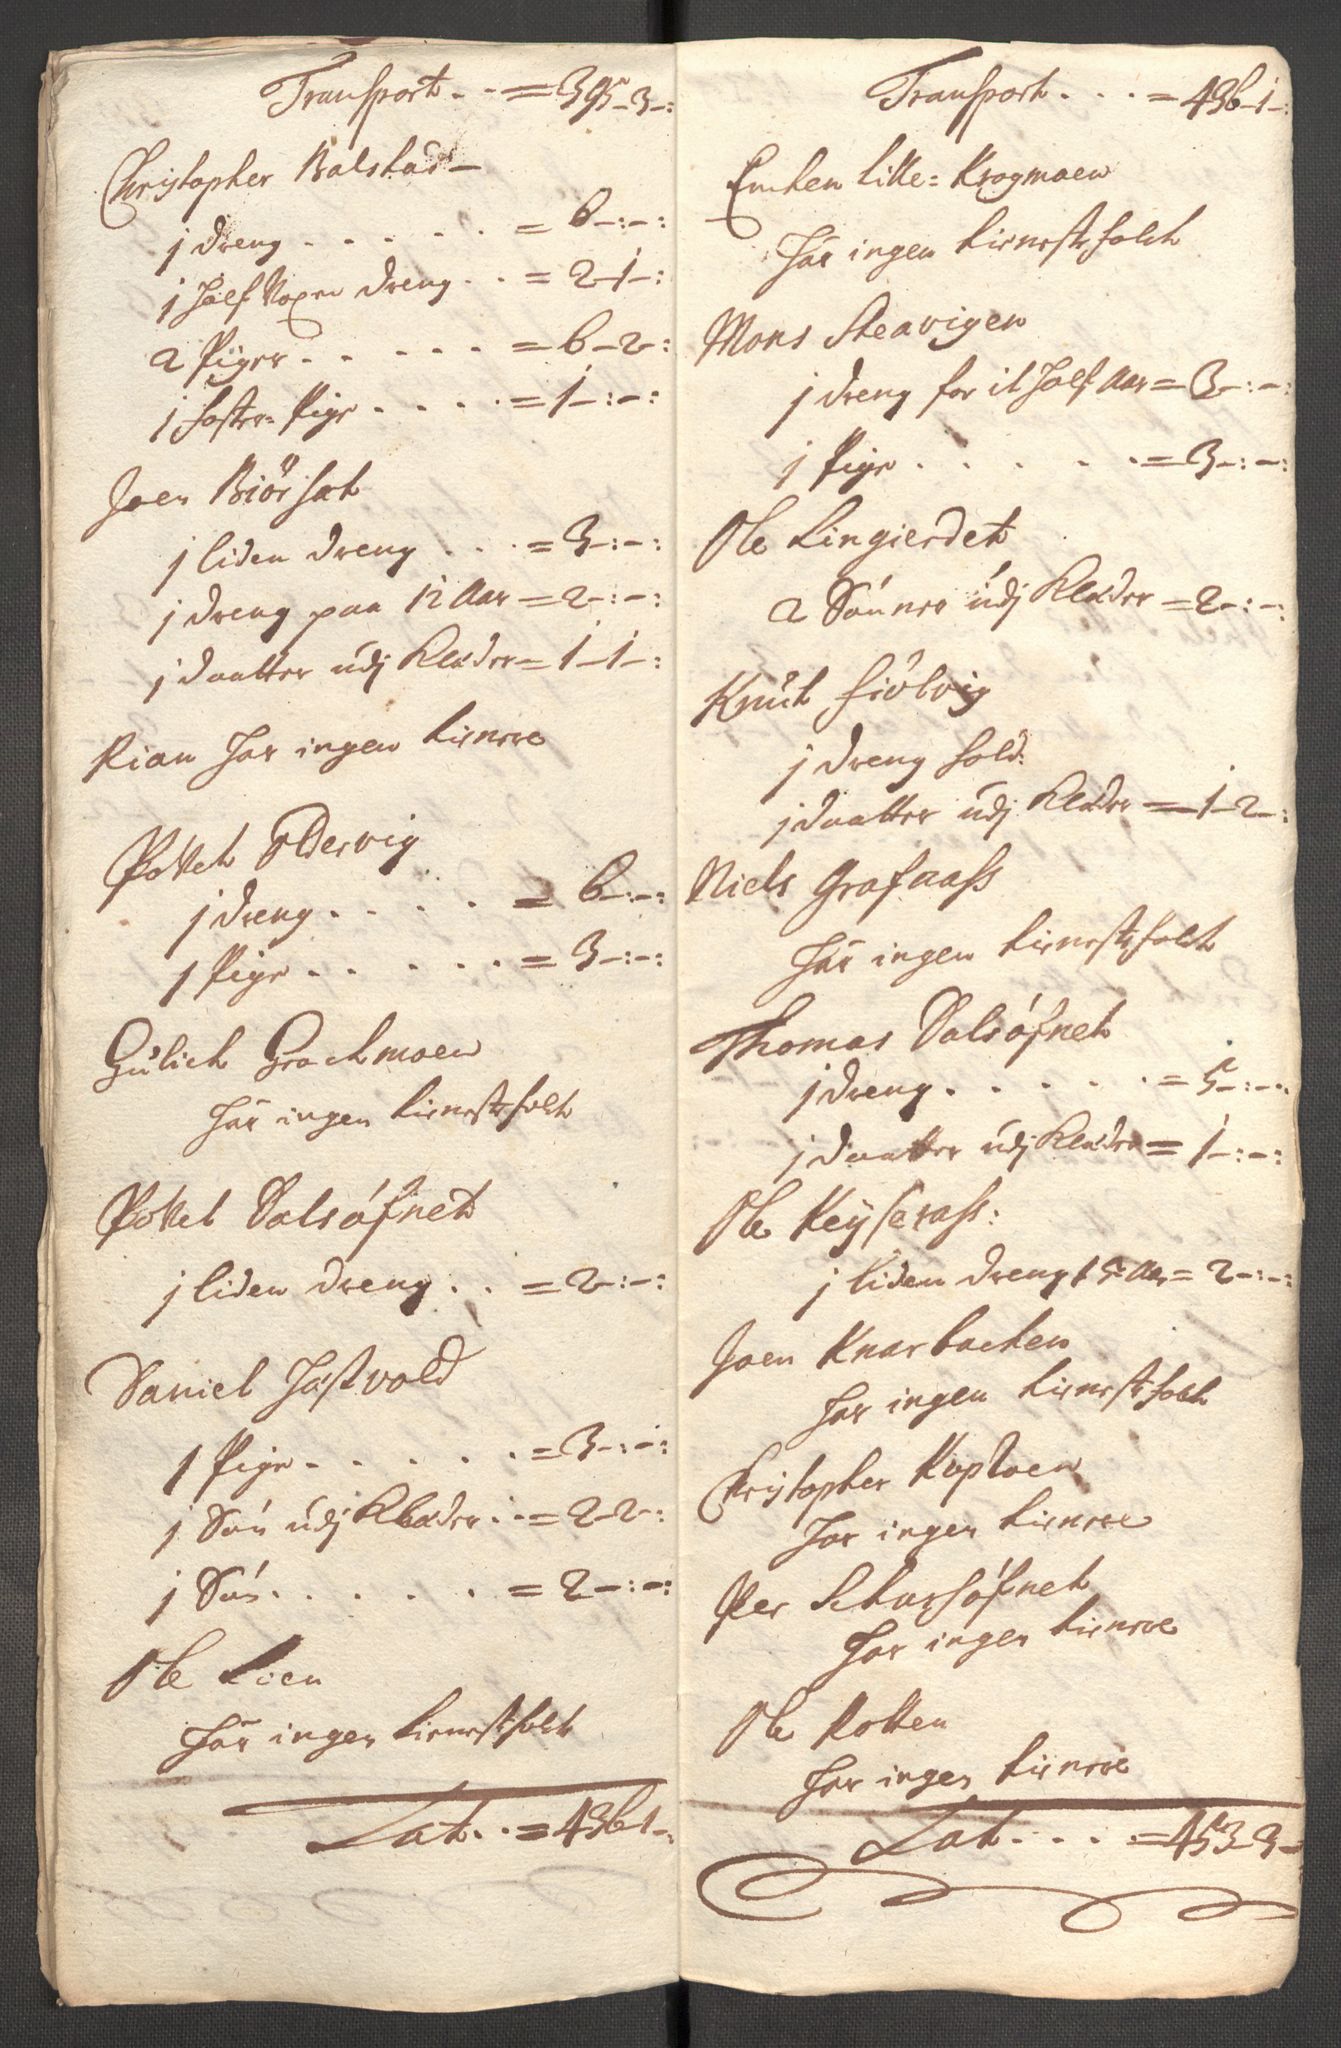 Transport. . = 395-3-:
Christopher Balstad-
j dreng . . . . . = 6-:-:
j half Voxen dreng . . = 2-1-:
2 Piger . . . . . = 6-2-:
1 foster-Pige . . . . = 1-:-:
Joen Biörset
j liden dreng . . . = 3-:-:
j dreng paa 12 Aar = 2-:-:
j daatter udj Klæder = 1-1-:
Rian har ingen tienere
Povel Oldervig
j dreng . . . . = 6-:-:
1 Pige . . . . . = 3-:-:
Gulich Grachmoen
har ingen tienestefolch
Povel Dalsófnet
j liden dreng . . = 2-:-:
Daniel Hastvold
1 Pige . . . . . = 3-:-:
j Søn udj Klæder . . = 2-2-:
j Søn . . . . . = 2-:-:
Ole Lien
har ingen tienestefolch
Lat. . = 436-1-:
Transport . . . = 436-1-:
lille = Krogmoen
har ingen tienestefolch
Mons Steavigen
j dreng for it half Aar = 3-:-:
j Pige . . . . . = 3-:-:
Ole Lingierdet
2 Sønner udj Klæder = 2-:-:
Knut Fiölvig
j dreng sold:
j daatter udj Klæder = 1-2-:
Niels Grafaass
har ingen tienestefolch
Thomas Dalsófnet
j dreng . . . . . = 5-:-:
j daatter udj Klæder = 1-:-:
Ole Keyseraass:
j liden dreng 15 Aar = 2-:-:
Joen Knarbacken
har ingen tienestefolch
Christopher
har ingen tienere
Per
har ingen tienere
Ole Kolken
har ingen tienere
Lat. . . . = 453-3-